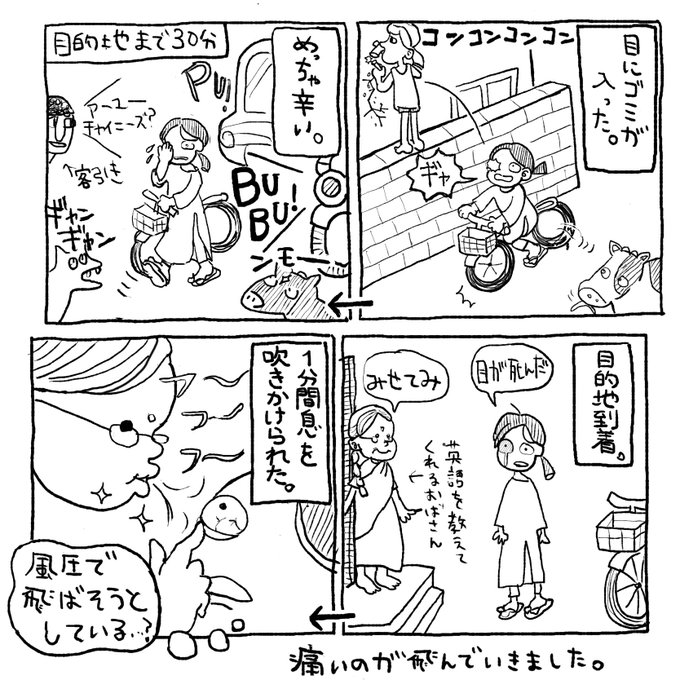 目にゴミが
入った。
コンコンコンコン
ギャ
めっちゃ辛い。
目的地まで30分
PU!
アーユー
チャイニーズ?
↑客引き
BU
BU!
ンモー
ギャン
ギャン
目的地到着。
目が死んだ
みせてみ
英語を教えて
くれるおばさん
1分間息を
吹きかけられた。
フー
フー
フー
風圧で
飛ばそうと
している…?
痛いのが飛んでいきました。